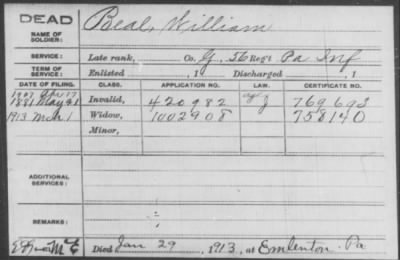 DEAD
NAME OF SOLDIER:
Beal, William
SERVICE:
Late rank, Co. G, 56 Reg't Pa Inf
TERM OF SERVICE:
Enlisted , 1 Discharged , 1
DATE OF FILING. CLASS. APPLICATION NO. LAW. CERTIFICATE NO.
1907 Apr 17
1881 May 21 Invalid, 420982 J 769693
1913 Mar 1 Widow, 1002908 758140
Minor,
ADDITIONAL SERVICES:
REMARKS:
Died Jan 29, 1913, at Emlenton Pa